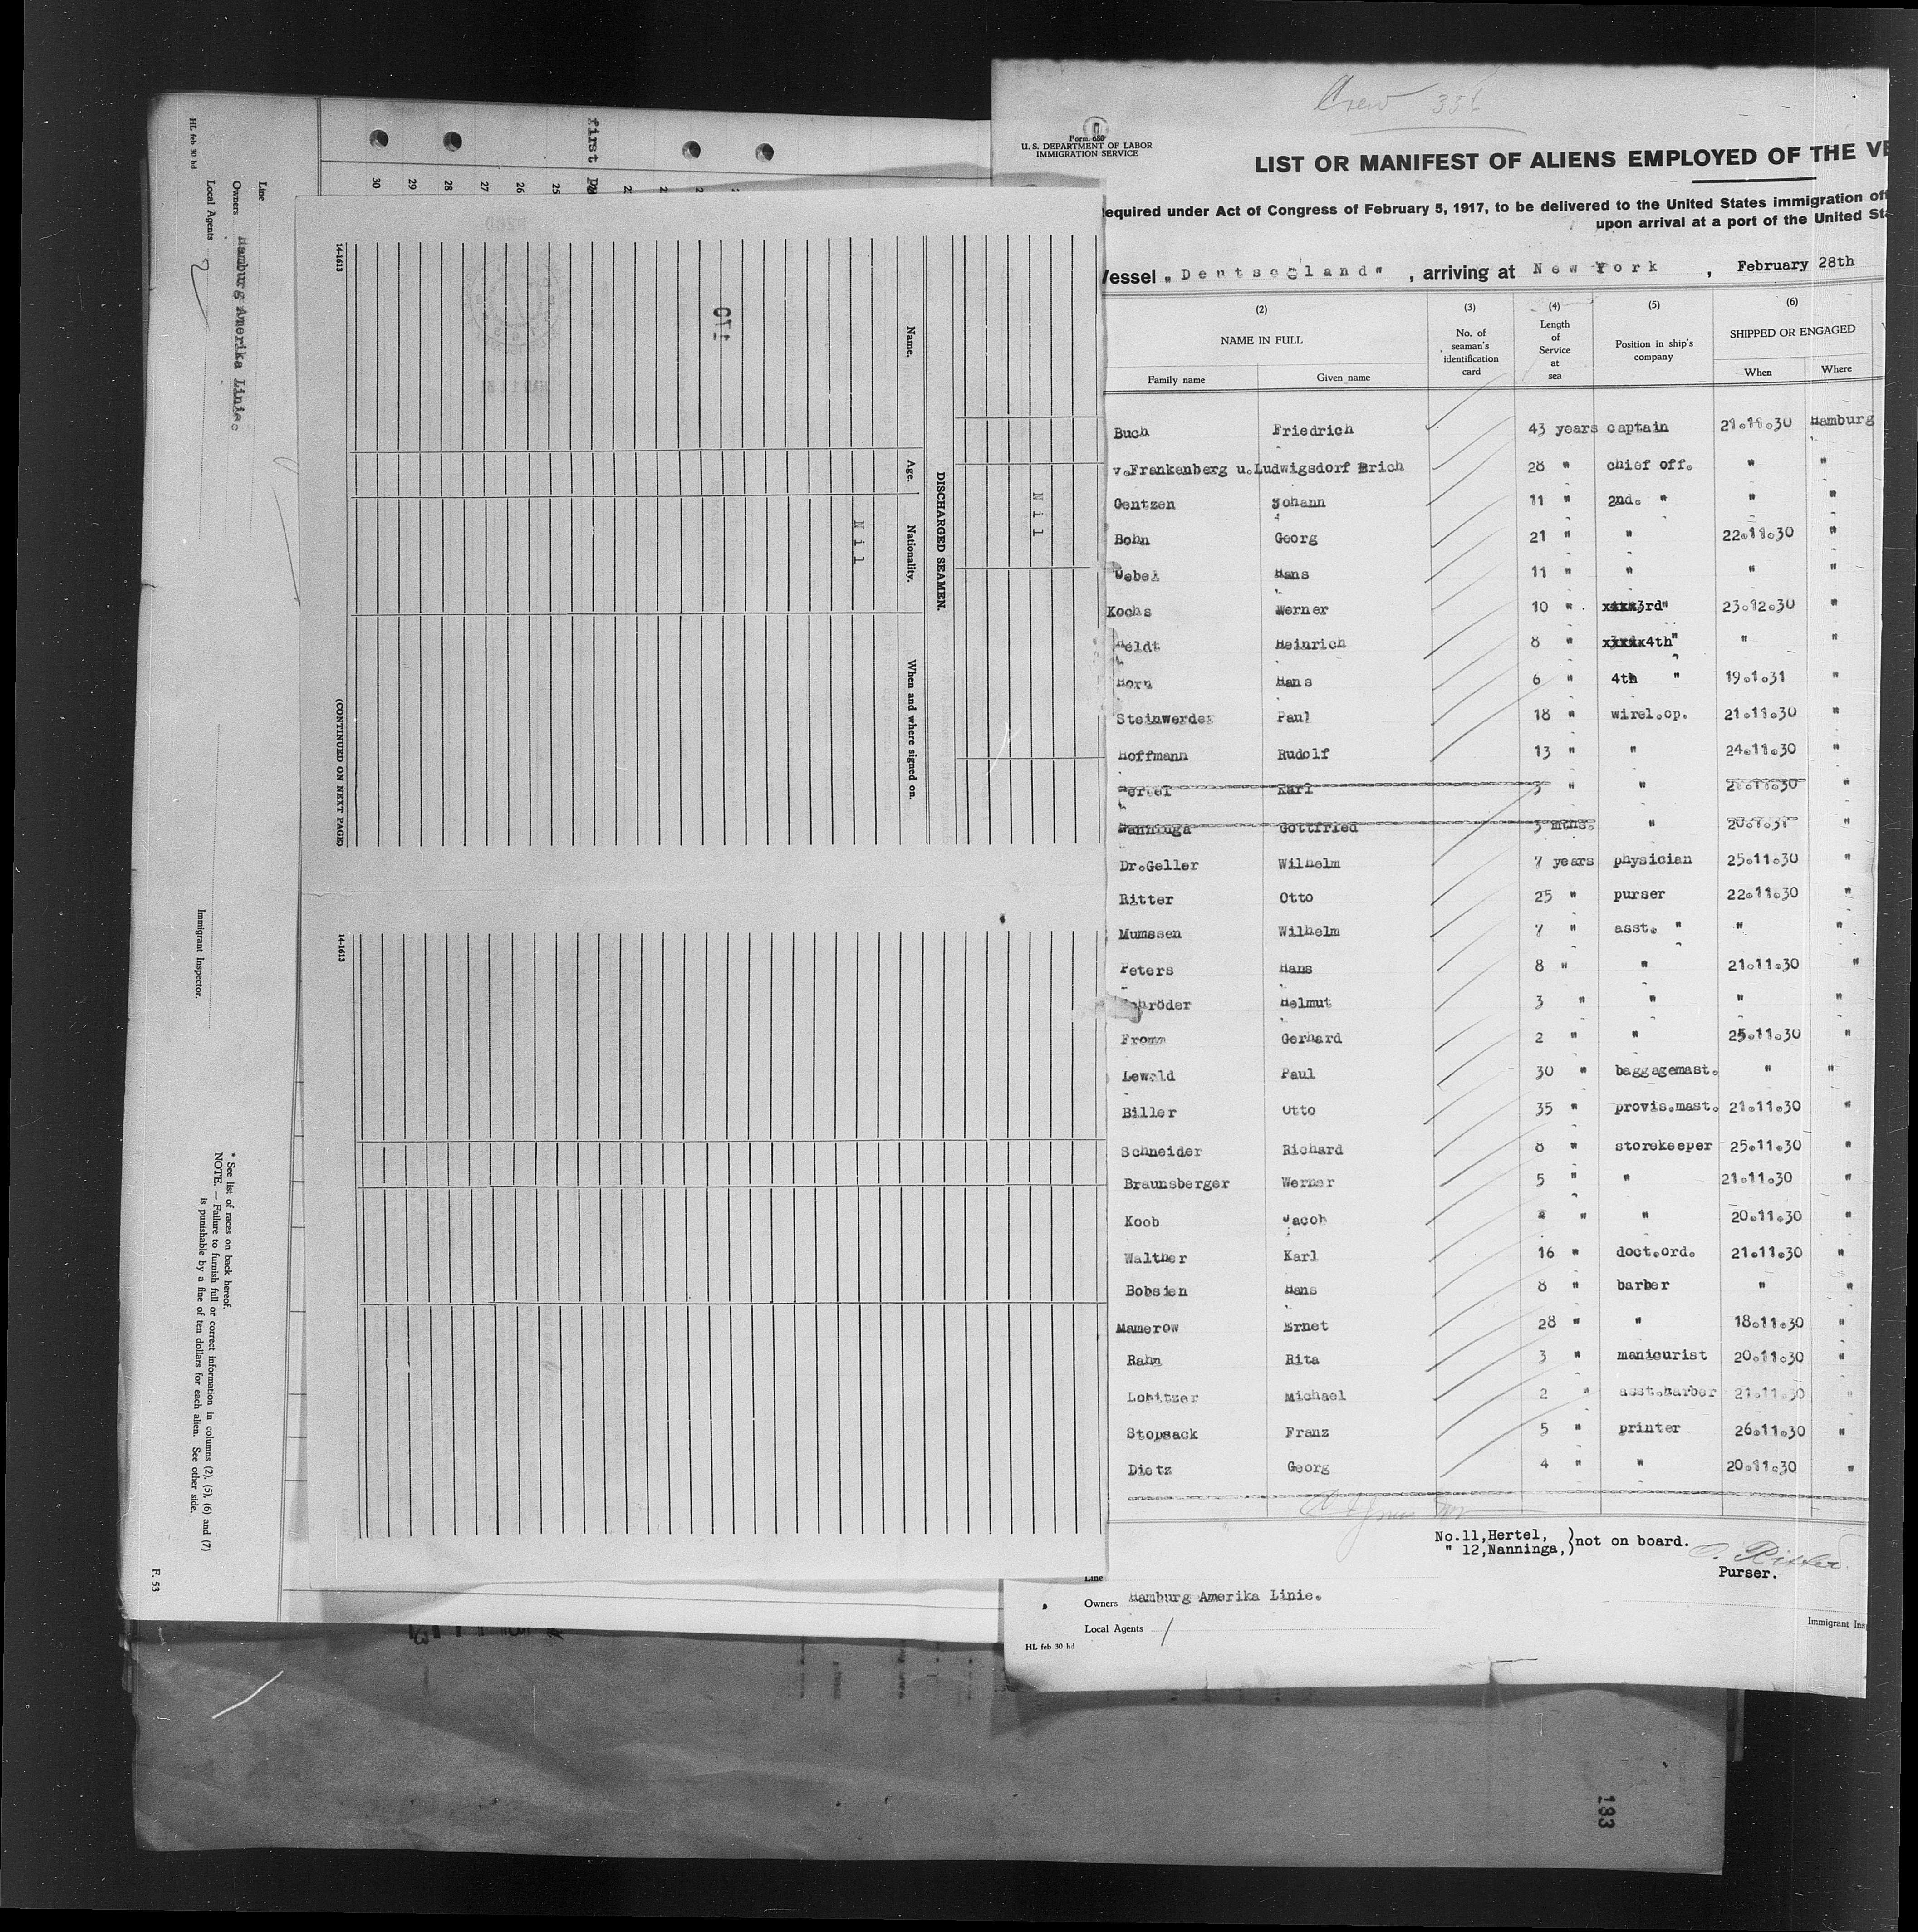 Crew 336
Form 650
U. S. DEPARTMENT OF LABOR
IMMIGRATION SERVICE
LIST OR MANIFEST OF ALIENS EMPLOYED OF THE VE
equired under Act of Congress of February 5, 1917, to be delivered to the United States immigration off
upon arrival at a port of the United Sta
Vessel „Deutschland" , arriving at New York , February 28th
(2) (3) (4) (5) (6)
NAME IN FULL No. of seaman's identification card Length of Service at sea Position in ship's company SHIPPED OR ENGAGED
Family name Given name When Where
Buch Friedrich 43 years captain 21.11.30 Hamburg
v.Frankenberg u.Ludwigsdorf Erich 28 " chief off. " "
Gentzen Johann 11 " 2nd. " " "
Bohn Georg 21 " " 22.11.30 "
Uebel Hans 11 " " " "
Kochs Werner 10 " 3rd " 23.12.30 "
Heldt Heinrich 8 " 4th " " "
Horn Hans 6 " 4th " 19.1.31 "
Steinwerder Paul 18 " wirel.op. 21.11.30 "
Hoffmann Rudolf 13 " " 24.11.30 "
Hertel Karl 3 " " 21.11.30 "
Nanninga Gottfried 3 mths. " 20.1.31 "
Dr.Geller Wilhelm 7 years physician 25.11.30 "
Ritter Otto 25 " purser 22.11.30 "
Mumssen Wilhelm 7 " asst. " " "
Peters Hans 8 " " 21.11.30 "
Schröder Helmut 3 " " " "
Fromm Gerhard 2 " " 25.11.30 "
Lewald Paul 30 " baggagemast. " "
Biller Otto 35 " provis.mast. 21.11.30 "
Schneider Richard 8 " storekeeper 25.11.30 "
Braunsberger Werner 5 " " 21.11.30 "
Koob Jacob " " 20.11.30 "
Walther Karl 16 " doct.ord. 21.11.30 "
Bobsien Hans 8 " barber " "
Mamerow Ernet 28 " " 18.11.30 "
Rahn Rita 3 " manicurist 20.11.30 "
Lobitzer Michael 2 " asst.barber 21.11.30 "
Stopsack Franz 5 " printer 26.11.30 "
Dietz Georg 4 " " 20.11.30 "
No.11,Hertel,
" 12,Nanninga, )not on board.
O. Ritter
Purser.
Line
Owners Hamburg Amerika Linie.
Local Agents
Immigrant Ins
HL feb 30 hd
first
30 29 28 27 26 25
Nil
DISCHARGED SEAMEN.
Name. Age. Nationality. When and where signed on.
Nil
14-1613
(CONTINUED ON NEXT PAGE)
14-1613
Line
Owners Hamburg Amerika Linie.
Local Agents
HL feb 30 hd
Immigrant Inspector.
* See list of races on back hereof.
NOTE. — Failure to furnish full or correct information in columns (2), (5), (6) and (7)
is punishable by a fine of ten dollars for each alien. See other side.
F. 53
133